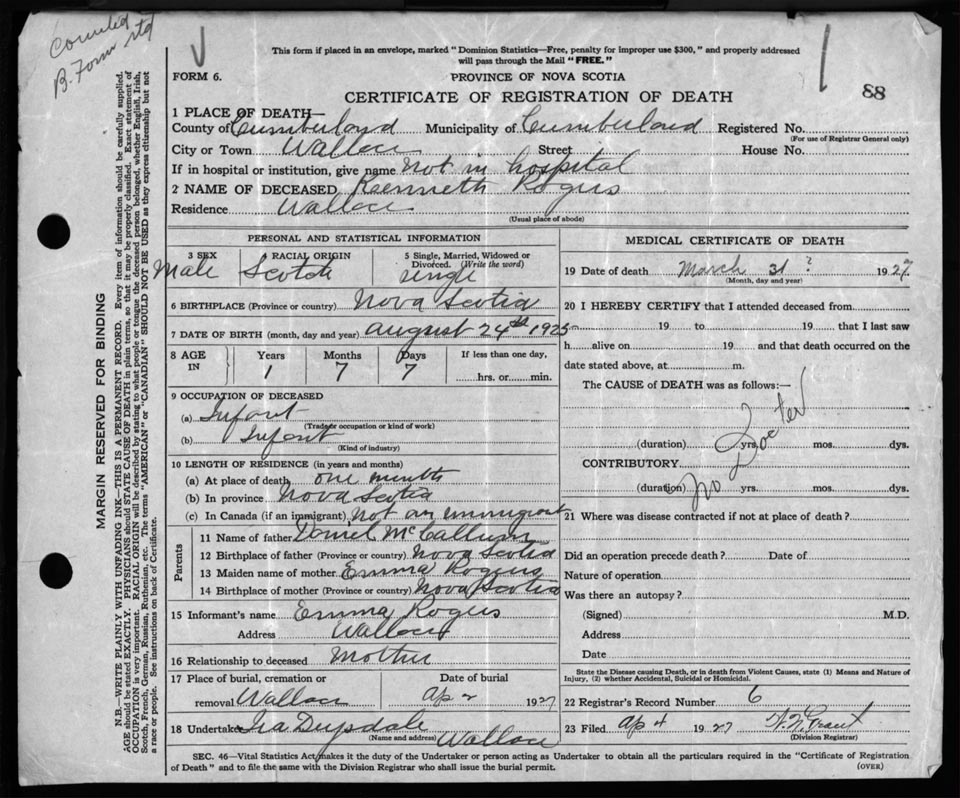 Counted
B. Form
This form if placed in an envelope, marked "Dominion Statistics—Free, penalty for improper use $300," and properly addressed
will pass through the Mail "FREE."
FORM 6.
PROVINCE OF NOVA SCOTIA
88
CERTIFICATE OF REGISTRATION OF DEATH
1 PLACE OF DEATH—
County of Cumberland Municipality of Cumberland Registered No.
(For use of Registrar General only)
City or Town Wallace Street House No.
If in hospital or institution, give name not in hospital
2 NAME OF DECEASED Kenneth Rogers
Residence Wallace
(Usual place of abode)
PERSONAL AND STATISTICAL INFORMATION
3 SEX RACIAL ORIGIN 5 Single, Married, Widowed or
Divorced. (Write the word)
Male Scotch single
6 BIRTHPLACE (Province or country) Nova Scotia
7 DATE OF BIRTH (month, day and year) august 24th 1925
8 AGE IN Years Months Days If less than one day,
1 7 7 hrs. or min.
9 OCCUPATION OF DECEASED
(a) Infant
(Trade, occupation or kind of work)
(b) Infant
(Kind of industry)
10 LENGTH OF RESIDENCE (in years and months)
(a) At place of death one month
(b) In province Nova Scotia
(c) In Canada (if an immigrant) not an immigrant
Parents
11 Name of father Daniel McCallum
12 Birthplace of father (Province or country) Nova Scotia
13 Maiden name of mother Emma Rogers
14 Birthplace of mother (Province or country) Nova Scotia
15 Informant's name Emma Rogers
Address Wallace
16 Relationship to deceased Mother
17 Place of burial, cremation or Date of burial
removal Wallace Ap 2 1927
18 Undertaker Ira Drysdale
(Name and address) Wallace
MEDICAL CERTIFICATE OF DEATH
19 Date of death March 31 ? 1927
(Month, day and year)
20 I HEREBY CERTIFY that I attended deceased from
19 to 19 that I last saw
h alive on 19 and that death occurred on the
date stated above, at m.
The CAUSE of DEATH was as follows:—
No Docter
(duration) yrs. mos. dys.
CONTRIBUTORY
(duration) yrs. mos. dys.
21 Where was disease contracted if not at place of death?
Did an operation precede death? Date of
Nature of operation
Was there an autopsy?
(Signed) M.D.
Address
Date
State the Disease causing Death, or in death from Violent Causes, state (1) Means and Nature of
Injury, (2) whether Accidental, Suicidal or Homicidal.
22 Registrar's Record Number 6
23 Filed Ap 4 1927 Grant
(Division Registrar)
SEC. 46—Vital Statistics Act makes it the duty of the Undertaker or person acting as Undertaker to obtain all the particulars required in the "Certificate of Registration
of Death" and to file the same with the Division Registrar who shall issue the burial permit.
(OVER)
MARGIN RESERVED FOR BINDING
N.B.—WRITE PLAINLY WITH UNFADING INK—THIS IS A PERMANENT RECORD. Every item of information should be carefully supplied.
AGE should be stated EXACTLY. PHYSICIANS should STATE CAUSE OF DEATH in plain terms, so that it may be properly classified. Exact statement of
OCCUPATION is very important. RACIAL ORIGIN will be described by stating to what people or tongue the deceased person belonged, whether English, Irish,
Scotch, French, German, Russian, Ruthenian, etc. The terms "AMERICAN" or "CANADIAN" SHOULD NOT BE USED as they express citizenship but not
a race or people. See instructions on back of Certificate.